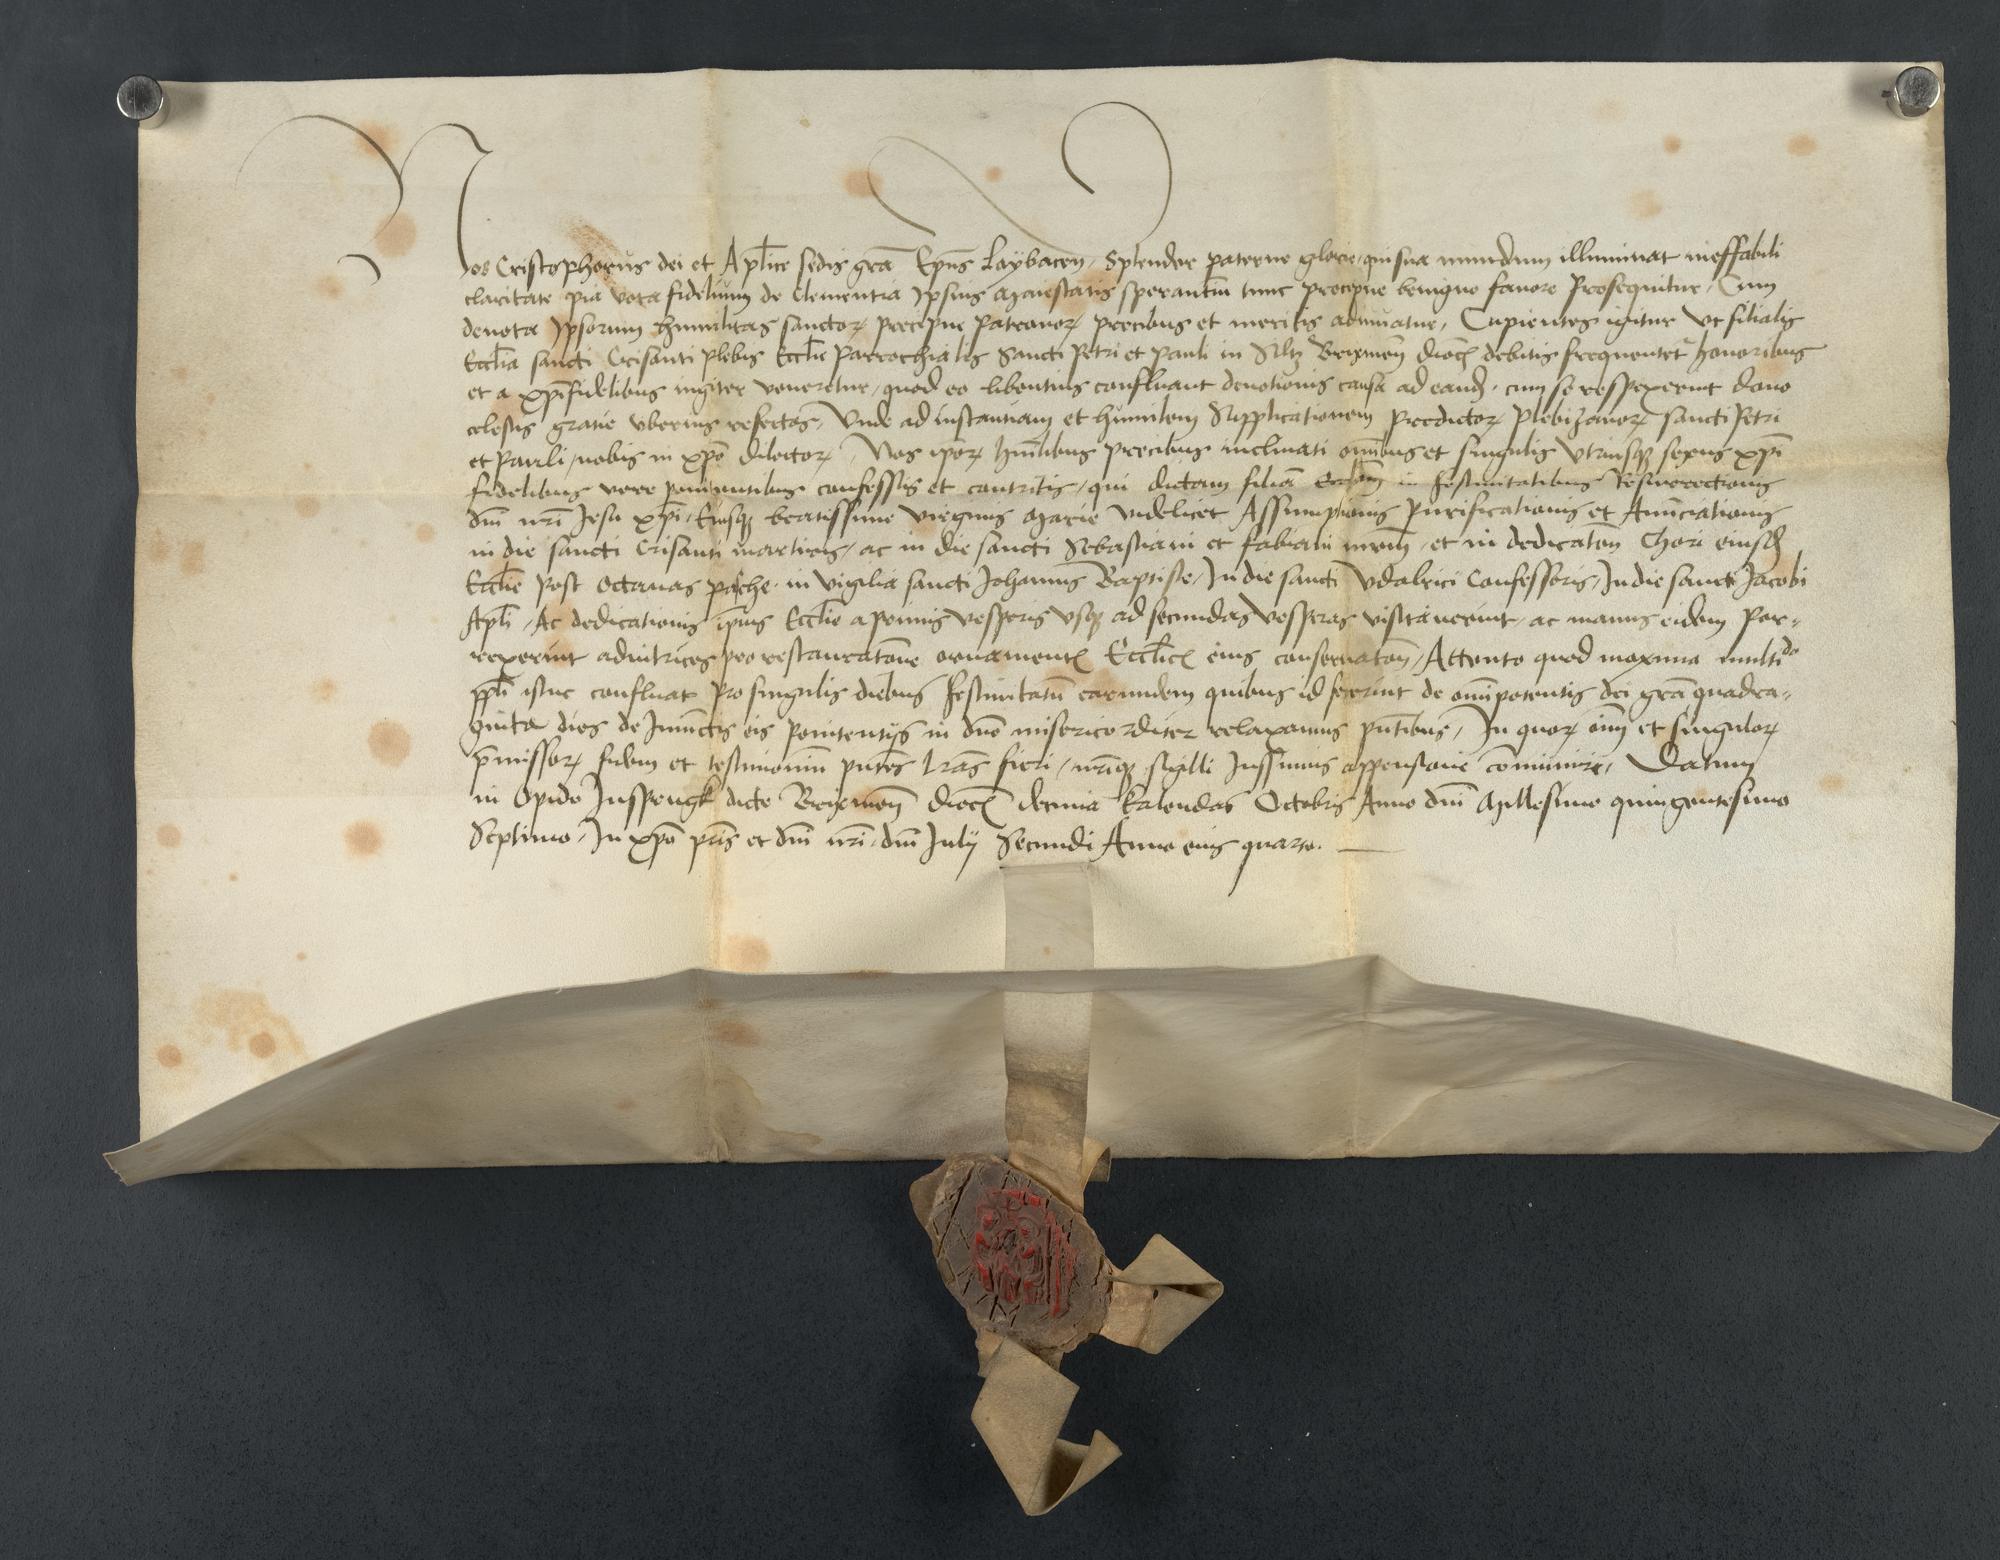 Nos Cristophorus dei et Aplice sedis gra Epus Laybaceñ, Splendor paterne glorie, qui sua mundum illuminat ineffabili
claritate pia vota fidelium de clementia ipsius Maiestatis sperantium tunc precipue benigno favore prosequitur, Cum
devota ipsorum humilitas sanctoꝝ precipue patronoꝝ precibus et meritis adiuvatur, Cupientes igitur ut filialis
Ecclia sancti Crisanti plebis Ecclie parrochialis Sancti Petri et Pauli in Siltz Brixineñ dioc̄ debitis frequentet honoribus
et a xpifidelibus iugiter veneretur, quod eo libentius confluant devotionis causa ad eand, cum se respexerint dono
celestis gratie uberius refectos, Unde ad instantiam et humilem Supplicationem predictoꝝ plebizanoꝝ sancti Petri
et Pauli, nobis in xpo dilectoꝝ, Nos ipoꝝ humilibus precibus inclinati omibus et singulis utriusqꝫ sexus xpi
fidelibus vere penitentibus confessis et contritis, qui dictam filia eccliam in festivitatibus Resurrectionis
dni nri Jesu xpi, Eiusqꝫ beatissime virginis Marie videlicet Assumptionis Purificationis et Anunciationis
in die sancti Crisanti martiris, ac in die sancti Sebastiani et fabiani mrm, et in dedicatoñ Chori eiusd
Ecclie post octavas pasche, in vigilia sancti Johannis Baptiste, In die sancti Udalrici Confessoris, In die sancti Jacobi
Apli, Ac dedicationis ipius Ecclie a primis vesperis usqꝫ ad secundas vesperas visitaverint, ac manus eidem por-
rexerint adiutrices pro restauratone ornamentoꝝ Ecclie eius conservatoñ, Attento quod maxima multido
ppli istuc confluat pro singulis diebus festivitatu earundem quibus id fecerint de omipotentis dei gra quadra-
ginta dies de Iniunctis eis penitentijs in dno misericorditer relaxamus pntibus, In quoꝝ oim et singuloꝝ
pmissoꝝ fidem et testimonium pntes lras fieri, nriqꝫ sigilli Iussimus appensione comuniri, Datum
in Opido Insprugk dicte Brixineñ dioc̄ decima kalendas Octobris Anno dni Millesimo quingentesimo
Septimo, In xpo pris et dni nri, dni Julij Secundi Anno eius quarto.